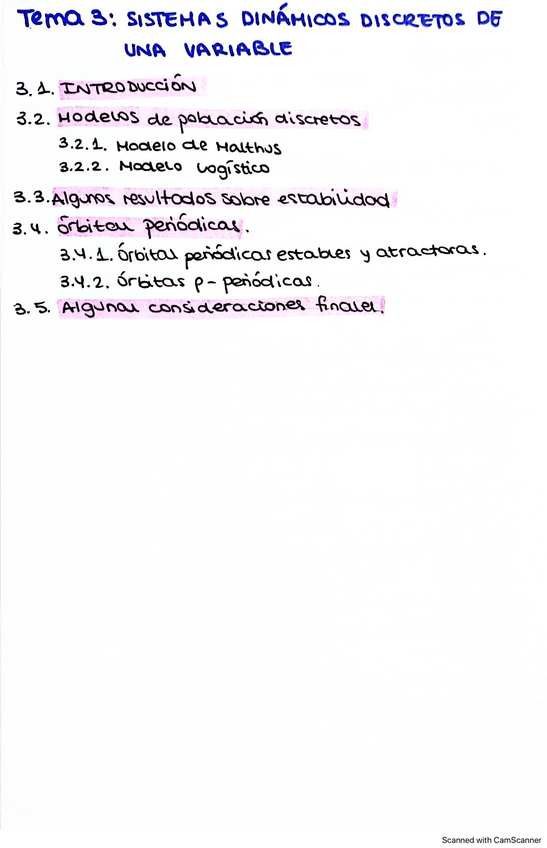 Tema 3: SISTEMAS DINÁMICOS DISCRETOS DE
UNA VARIABLE
3.1. INTRODUCCIÓN
3.2. Modelos de población discretos
3.2.1. Modelo de Malthus
3.2.2. Modelo logístico
3.3. Algunos resultados sobre estabilidad
3.4. órbitas periódicas.
3.4.1. Órbitas periódicas estables y atractoras.
3.4.2. órbitas p-periódicas.
3.5. Algunas consideraciones finales.
Scanned with CamScanner